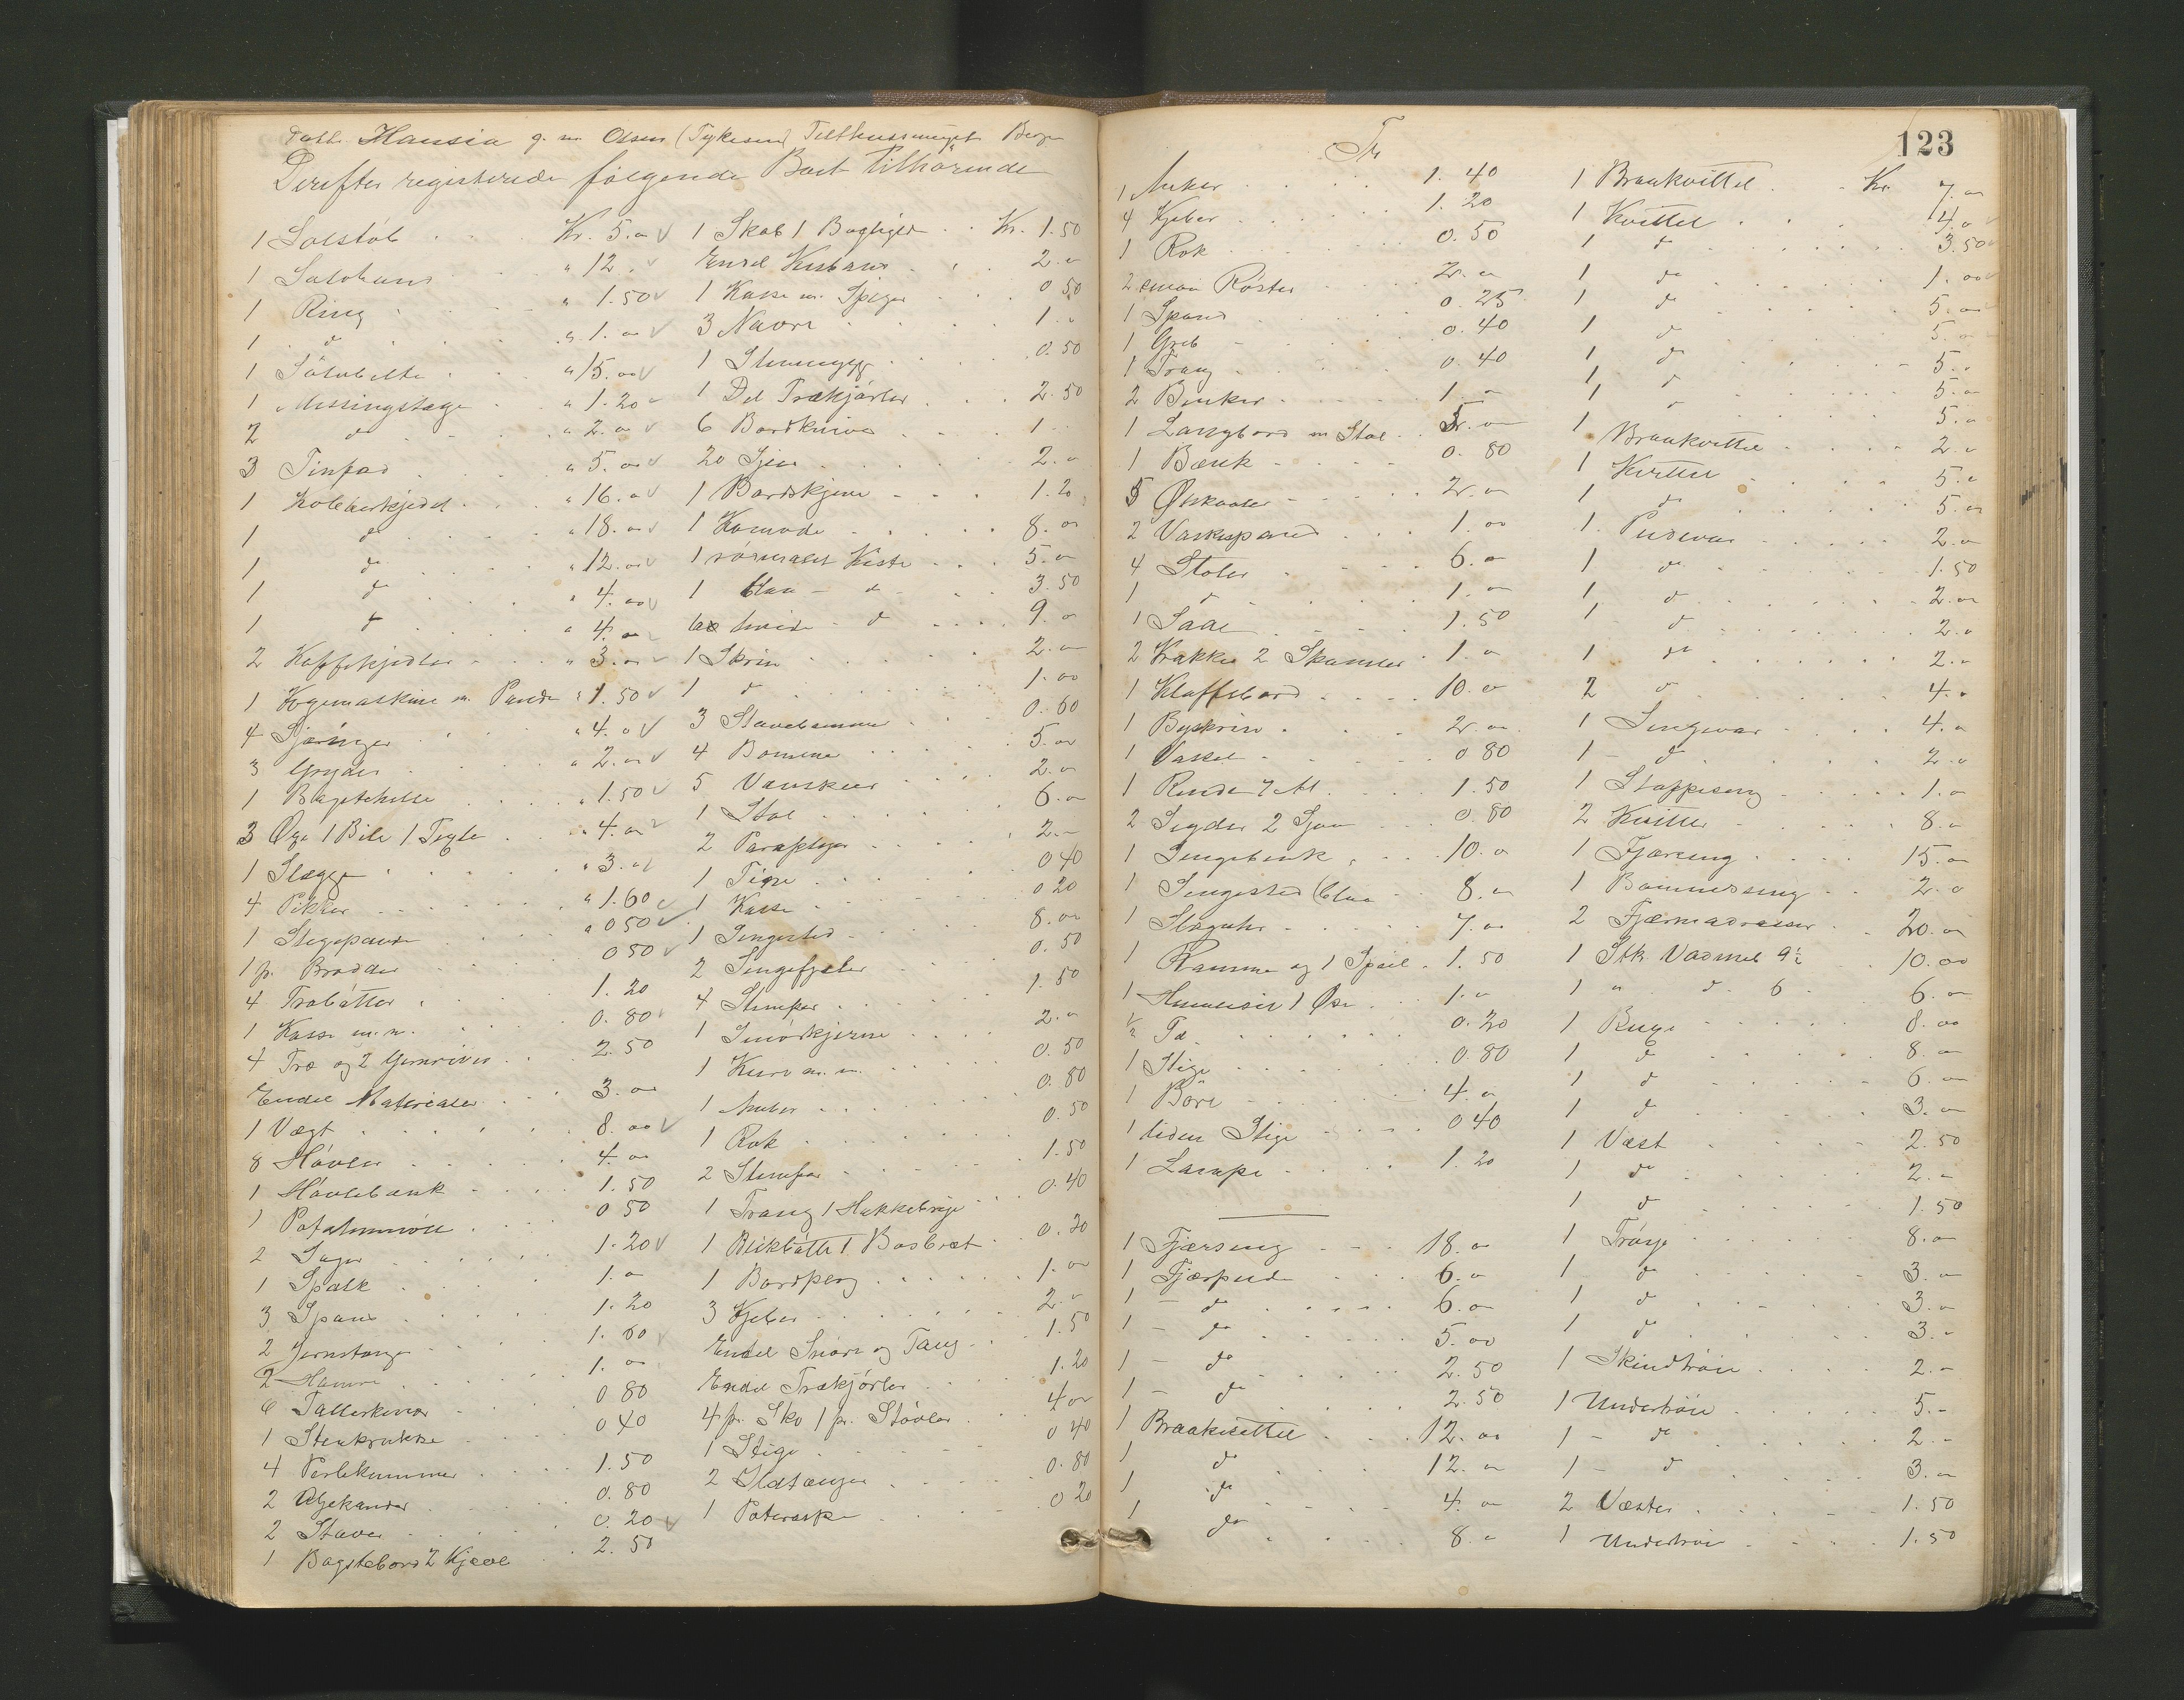 Datt. Hansia g. m. Olsen (Tykesen) Bergen
Derefter registerede følgende Boet tilhørende
1 Sølstøb Kr. 5.00
1 Sølvkaus " 12.
1 Ring " 1.50
1 do " 1.00
1 Sølvbelte " 15.00
1 Messingstage " 1.20
2 do " 2.00
3 Tinfad " 5.00
1 Kobberkjedel " 16.00
1 do " 18.00
1 do " 12.00
1 do " 4.00
1 do " 4.00
2 Kaffekjedler " 3.00
1 Kogemaskine m. Pande " 1.50
4 " 4.00
3 Gryder " 2.00
1 Bagstehelle " 1.50
3 Øxe 1 Bile 1 " 4.00
1 Slægge " 3.00
4 Pikker " 1.60
1 Stegepande " 0 50
1 p. Brodder 0 50
4 Trøbøtter 1.20
1 Kasse m.m. 0.80
4 Træ og 2 Jernriver 2.50
Endel Materialer 3.00
1 Vægt 8.00
8 Høvler 4.00
1 Høvlebænk 1.50
1 0 50
2 Sager 1.20
1 Spalk 1.00
3 Spand 1.20
2 Jernstænge 1.60
2 Hamre 1.00
6 Tallerkener 0 80
1 Stenkrukke 0 40
4 1.50
2 Oljekander 0.80
2 Staver 0.20
1 Bagstebord 2 Kjævl 2.50
1 Skab 1 Bogligen Kr. 1.50
Endel 2.00
1 Kasse m. Spiger 0 50
3 Navre 1.
1 0.50
1 Del Trækjørler 2.50
6 Bordknive 1.
20 Sjeer 2.00
1 Bordskjene 1.20
1 Komode 8.00
1 rødmalet Kiste 5.00
1 blaa do 3.50
hvide do 9.00
1 Skrin 2.00
1 do 1.00
3 0.60
4 Bomme 5.00
5 2.00
1 Stol 6.00
2 Paraplyer 2.
1 Tine 0 40
1 Kasse 0 20
1 Sengested 8.00
2 Sengefjæler 0.50
4 Stamper 1.50
1 Smørkjerne 2.00
1 Kurv m.m. 0.50
1 Anker 0.80
1 Rok 0.50
2 Stamper 1.50
1 Traug 1 Hakkebrye 0.40
1 Blikbøtte 1 0.20
1 Bordperg 1.00
3 Kjeber 2.00
Endel Snøre og Taug 1.50
Endel Trækjørler 1.20
4 pr. Sko 1 pr. Støvler 4.00
1 Stige 0 40
2 Ildtænger 0.80
1 Poteraspe 0 20
123
Tr
1 Anker 1.40
4 Kjeber 1.20
1 Rok 0.50
2 smaa Røster 2.00
1 Spand 0.25
1 Greb 0.40
1 Traug 0.40
2 Bøtker 1.00
1 Langbord m Stol 5.00
1 Bænk 0.80
5 Øskaaler 2.00
2 Vaskespand 1.00
4 Stoler 6.00
1 do 1.00
1 Saal 1.50
2 Krakke 2 Skamler 1.00
1 Klaffebord 10.00
1 Byskrin 2.00
1 Vassel 0 80
1 Rende 7 Al 1.50
2 Sigder 2 0.80
1 Sengebenk 10.00
1 Sengested (blaa 8.00
1 Slaguhr 7.00
1 Ramme og 1 Speil 1.50
1 1 Øse 1.00
1/2 Td 0.20
1 Stige 0.80
1 Børe 4.00
1 liden Stige 0 40
1 Lampe 1.20
1 Fjærseng 18.00
1 Fjærpude 6.00
1 - do 6.00
1 - do 5.00
1 - do 2.50
1 - do 2.50
1 Braakvittel 12.00
1 do 12.00
1 do 4.00
1 do 8.00
1 Braakvittel Kr. 7.00
1 Kvittel 4.00
1 do 3.50
1 do 1.00
1 do 5.00
1 do 5.
1 do 5.
1 do 5.00
1 do 5.00
1 Braakvittel 2.00
1 Kvittel 5.00
1 do 5.00
1 Pudevar 2.00
1 do 1.50
1 do 2.00
1 do 2.00
1 do 2.00
2 do 4.00
1 Sengevar 4.00
1 - do 2.00
1 Stoppeseng 1.00
2 Kvitter 8.00
1 Fjærseng 15.00
1 Bommesseng 2.00
2 Fjærmadrasser 20.00
1 Stk Vadmel 9½ 10.00
1 " do 6 6.00
1 Ruge 8.00
1 do 8.00
1 do 6.00
1 do 3.00
1 Væst 2.50
1 do 2.00
1 do 1.50
1 Trøye 8.00
1 do 3.00
1 do 3.00
1 do 3.00
1 Skindtrøie 2.00
1 Undertrøie 5.-
1 - do 2.00
1 - do 3.00
2 Væster 1.50
1 Undertrøie 1.50